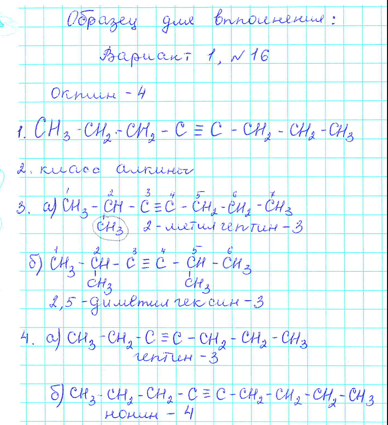 Образец для выполнения:
Вариант 1, №16
Октин - 4
1. CH₃ - CH₂ - CH₂ - C ≡ C - CH₂ - CH₂ - CH₃
2. класс алкины
1 2 3 4 5 6 7
3. а) CH₃ - CH - C ≡ C - CH₂ - CH₂ - CH₃
CH₃ 2 - метилгептин - 3
1 2 3 4 5 6
б) CH₃ - CH - C ≡ C - CH - CH₃
CH₃ CH₃
2,5 - диметилгексин - 3
4. а) CH₃ - CH₂ - C ≡ C - CH₂ - CH₂ - CH₃
гептин - 3
б) CH₃ - CH₂ - CH₂ - C ≡ C - CH₂ - CH₂ - CH₂ - CH₃
нонин - 4